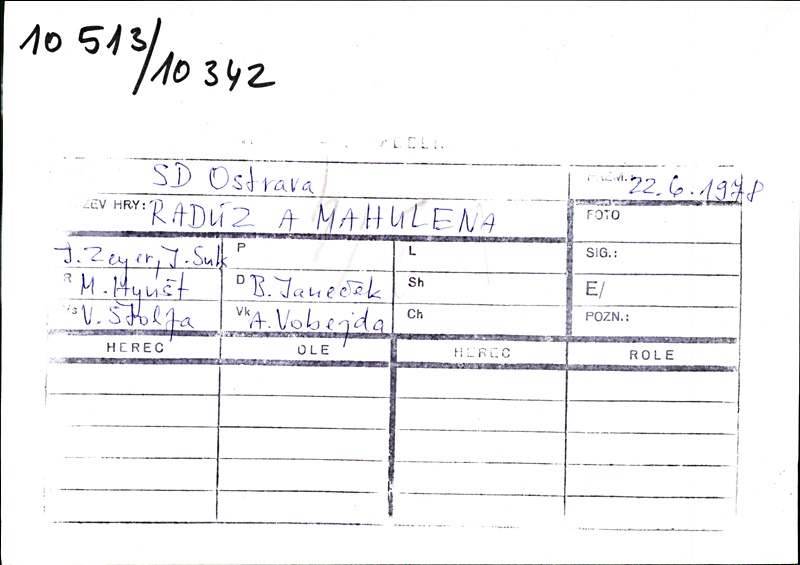 10 513/10 342
SD Ostrava
22.6.1978
ZEV HRY: RADÚZ A MAHULENA
FOTO
J. Zeyer, J. Suk P L SIG.:
R M. Hynšt D B. Janeček Sh E/
V. Štolfa Vk A. Vobejda Ch POZN.:
HEREC OLE HEREC ROLE